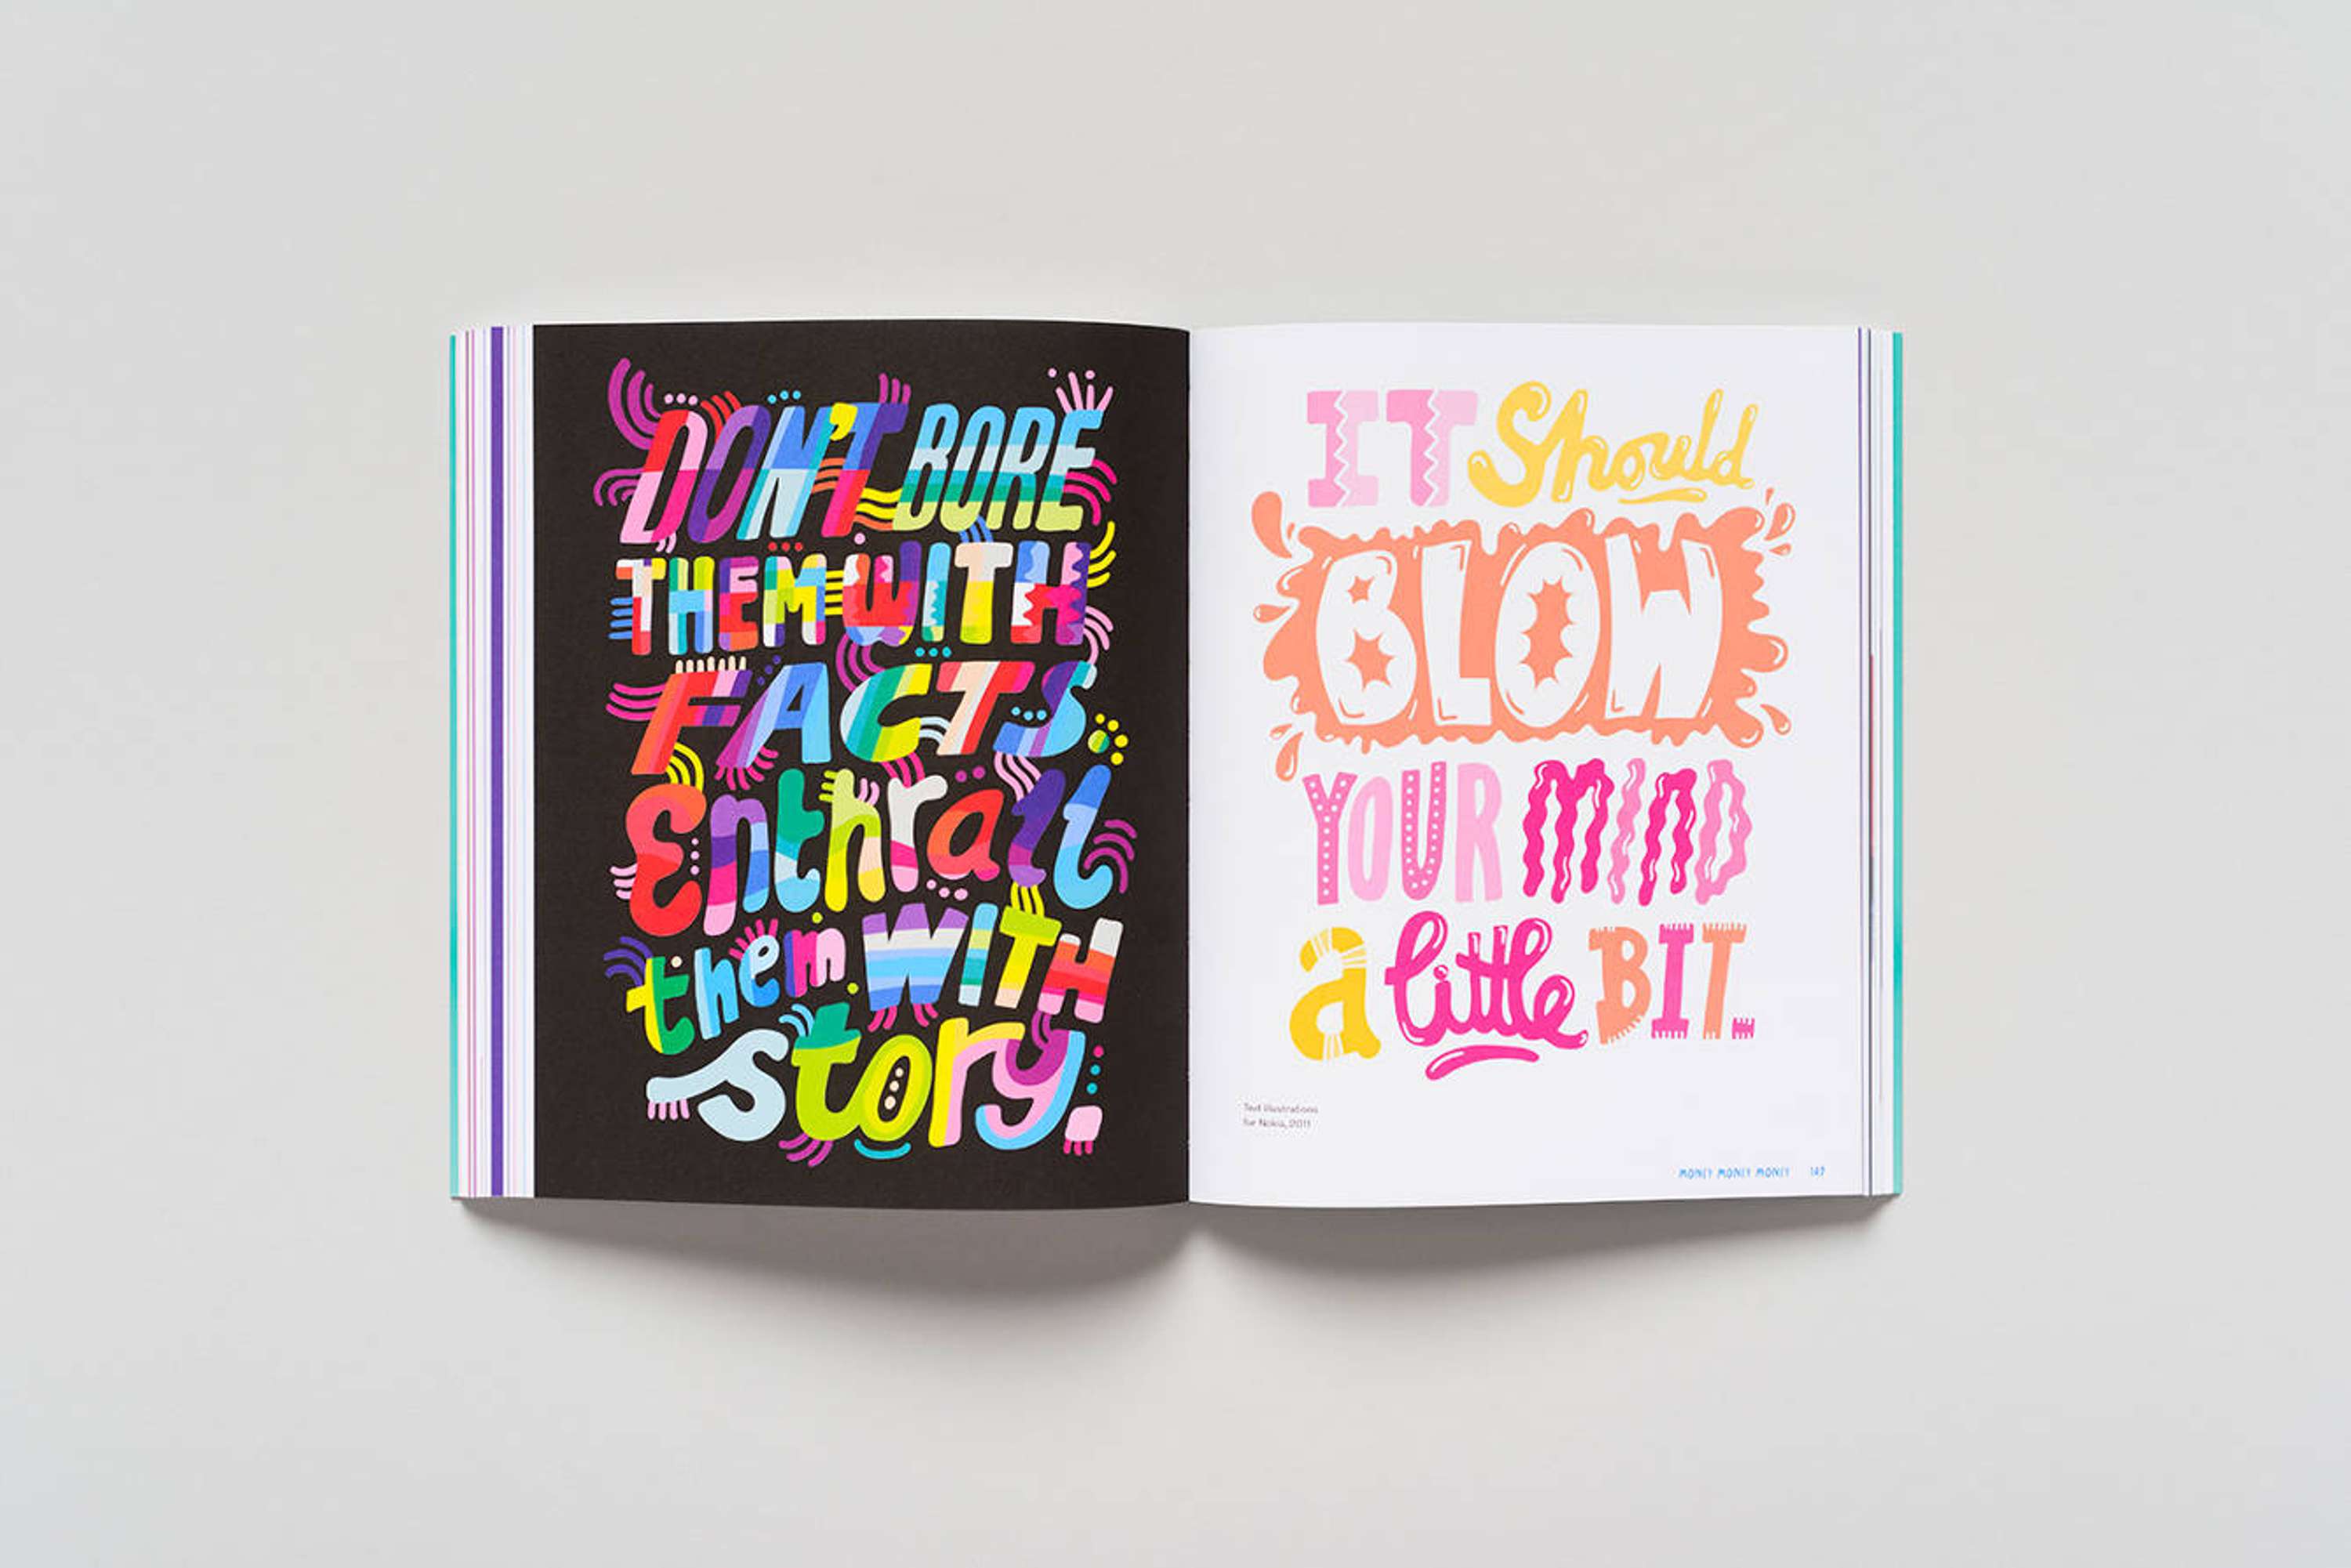 DON'T BORE
THEM WITH
FACTS.
Enthrall
them WITH
story.
IT Should
BLOW
YOUR MIND
a little BIT.
Text illustrations
for Nokia, 2011
MONEY MONEY MONEY 149